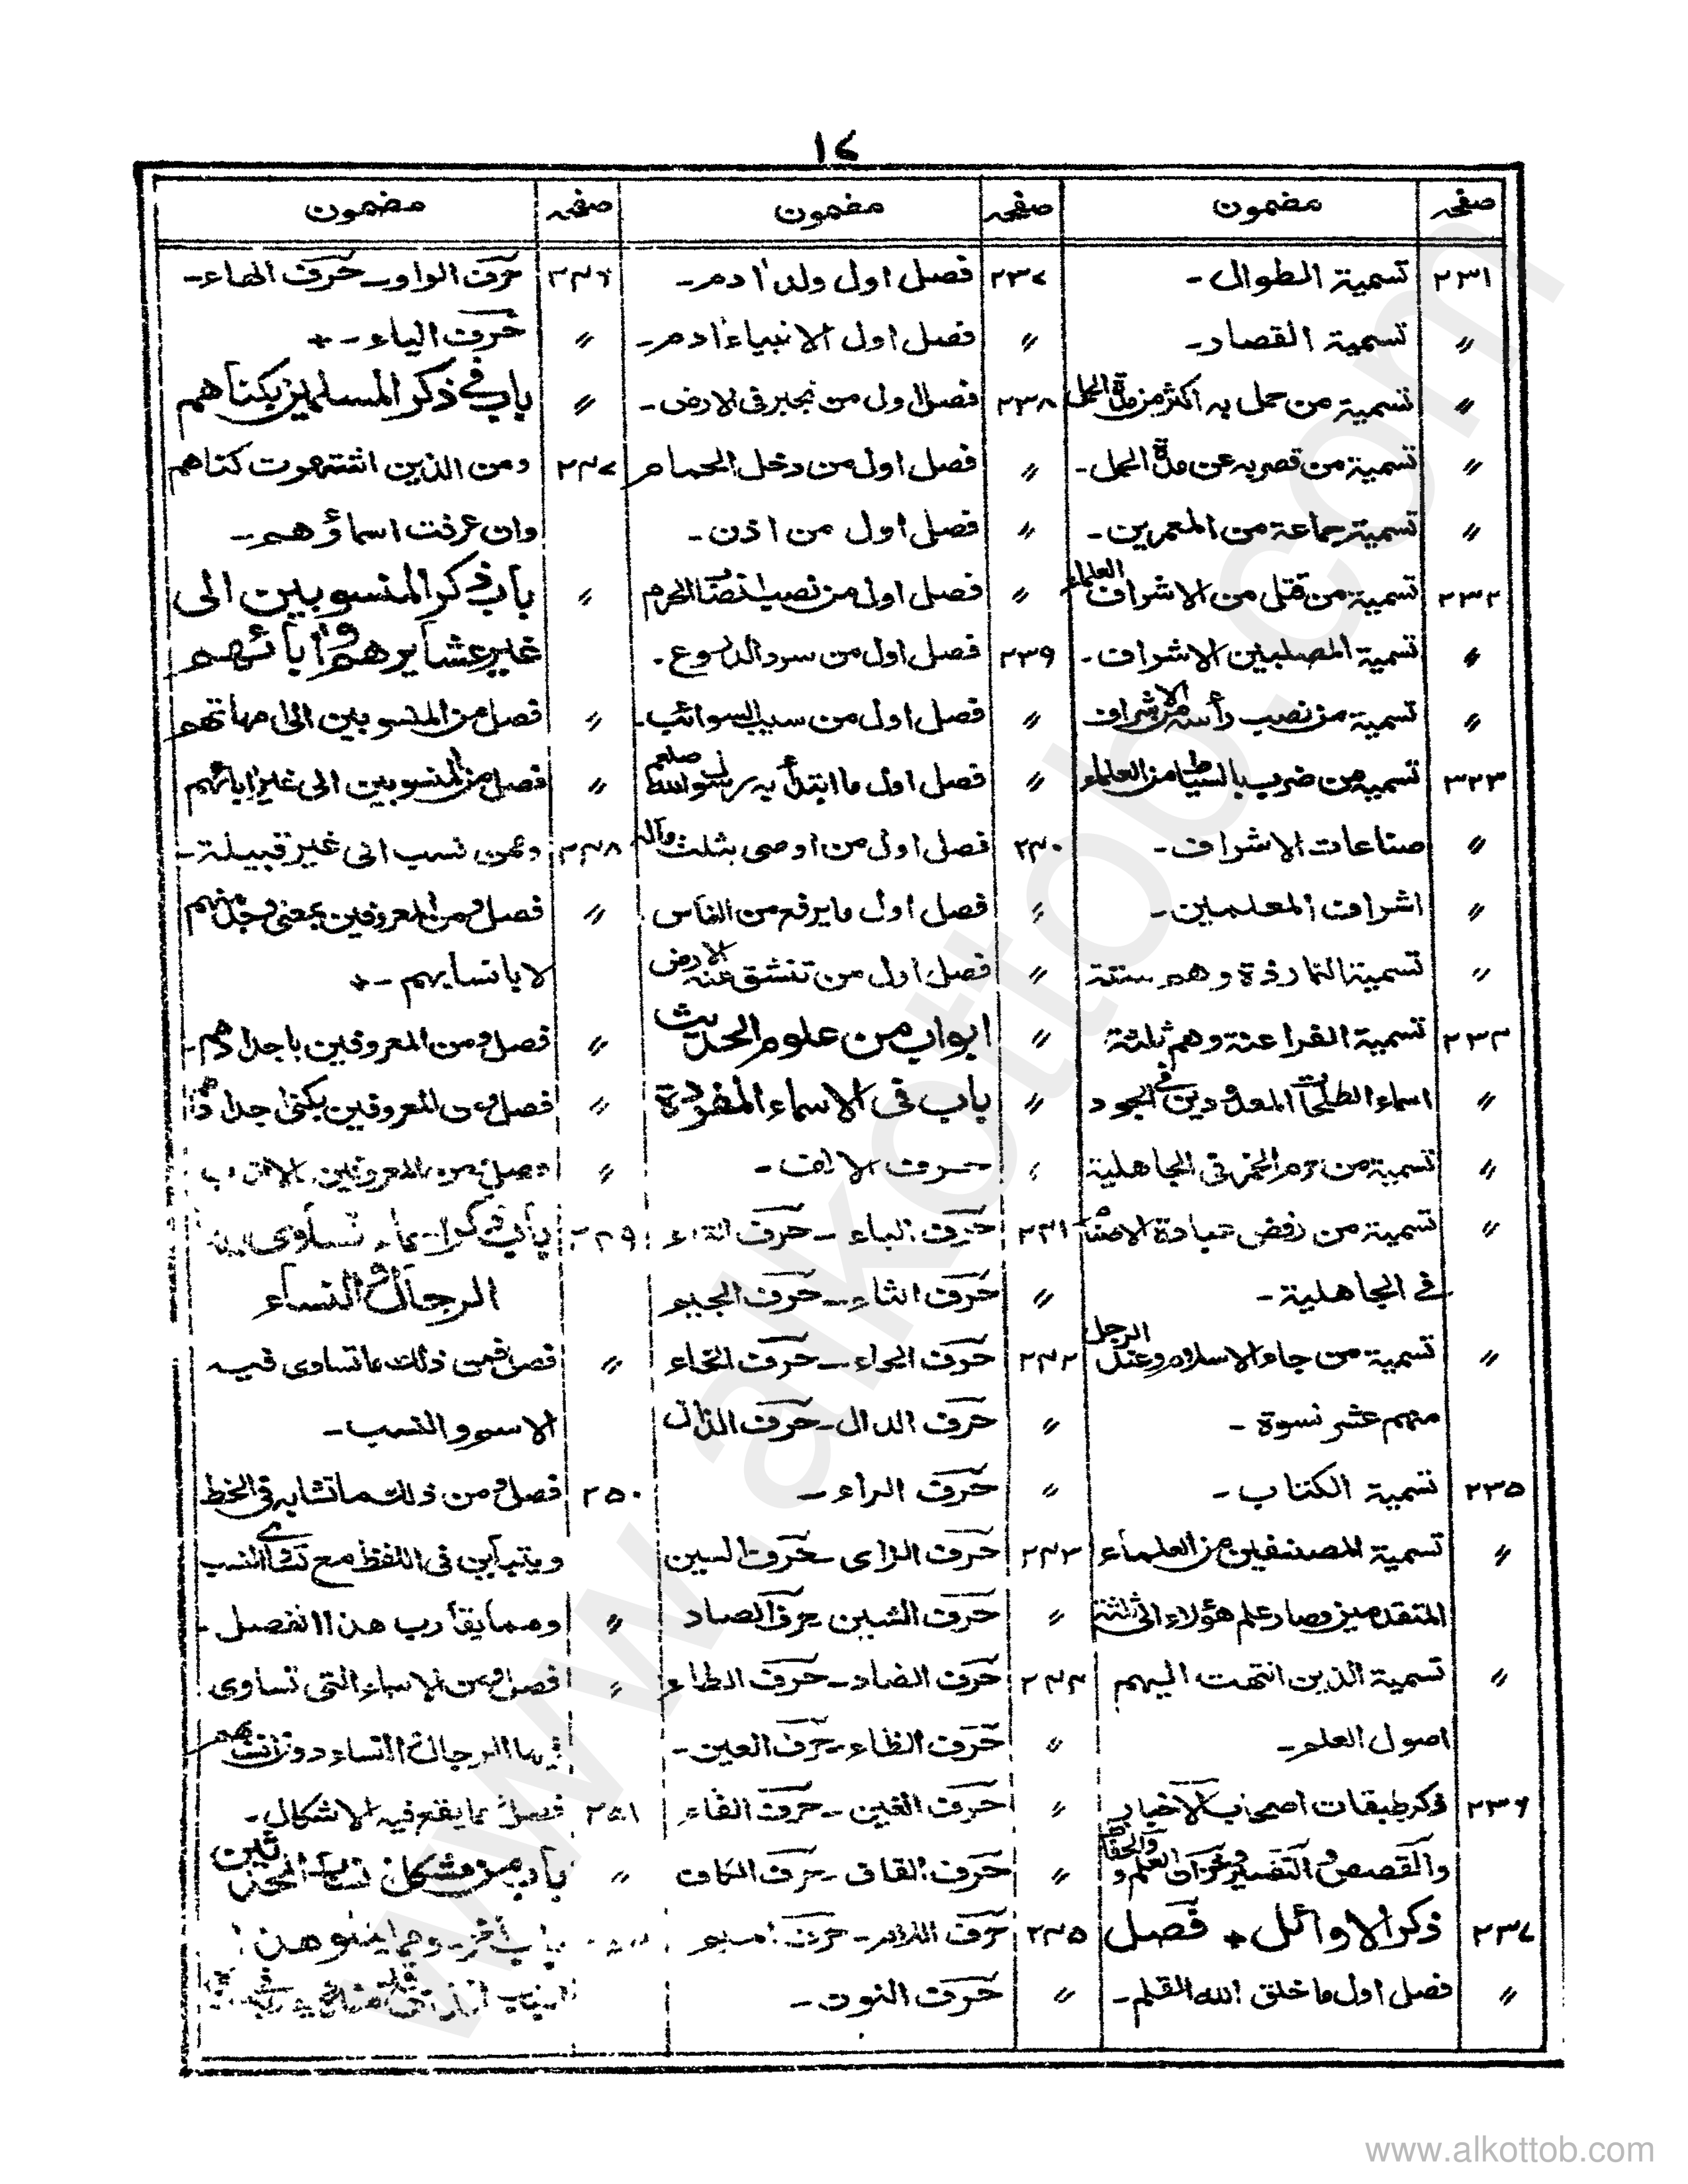 ١٧
صفحہ مضمون
٢٣١ تسمیة الطوال۔
〃 تسمیة القصار۔
〃 تسمیة من حمل به اکثر من مدة الحمل
〃 تسمیة من قصر به عن مدة الحمل۔
〃 تسمیة جماعة من المعمرین۔
٢٣٢ تسمیة من قتل من الاشراف العلماء
〃 تسمیة المصلبین الاشراف۔
〃 تسمیة من نصب رأسه من الاشراف
٢٣٣ تسمیة من ضرب بالسیاط من العلماء
〃 صناعات الاشراف۔
〃 اشراف المعلمین۔
〃 تسمیة النماردة وهم ستة
٢٣٤ تسمیة الفراعنة وهم ثلثة
〃 اسماء الطلحات المعدودین فی الجود
〃 تسمیة من حرم الخمر فی الجاهلیة
〃 تسمیة من رفض عبادة الاصنام
فی الجاهلیة۔
〃 تسمیة من جاء الاسلام وعند الرجل
منهم عشر نسوة۔
٢٣٥ تسمیة الکتاب۔
〃 تسمیة المصنفین من العلماء
المتقدمین وصار علم هؤلاء الی ثلثة
〃 تسمیة الذین انتهت الیهم
اصول العلم۔
٢٣٦ ذکر طبقات اصحاب الاخبار
والقصص والتفسیر
٢٣٧ ذکر الاوائل + فصل
〃 فصل اول ما خلق الله القلم۔
صفحہ مضمون
٢٣٧ فصل اول ولد اٰدم۔
〃 فصل اول الانبیاء اٰدم۔
٢٣٨ فصل اول من تجبر فی الارض۔
〃 فصل اول من دخل الحمام
〃 فصل اول من اذن۔
〃 فصل اول من نصب انصاب الحرم
٢٣٩ فصل اول من سرد الدروع۔
〃 فصل اول من سیب السوائب۔
〃 فصل اول ما ابتدأ به رسول الله صلعم
٢٤٠ فصل اول من اوصی بثلث ماله
〃 فصل اول ما یرفع من الناس
〃 فصل اول من تنشق عنه الارض
〃 ابواب من علوم الحدیث
〃 باب فی الاسماء المفردة
〃 حرف الالف۔
٢٤١ حرف الباء۔حرف التاء
〃 حرف الثاء۔حرف الجیم
٢٤٢ حرف الحاء۔حرف الخاء
〃 حرف الدال۔حرف الذال
〃 حرف الراء۔
٢٤٣ حرف الزای۔حرف السین
〃 حرف الشین۔حرف الصاد
٢٤٤ حرف الضاد۔حرف الطاء
〃 حرف الظاء۔حرف العین۔
〃 حرف الغین۔حرف الفاء
〃 حرف القاف۔حرف الکاف
٢٤٥ حرف اللام۔حرف المیم
〃 حرف النون۔
صفحہ مضمون
٢٤٦ حرف الواو۔حرف الهاء۔
〃 حرف الیاء۔+
〃 باب فی ذکر المسلمین بکناهم
٢٤٧ ومن الذین اشتهرت کناهم
وان عرفت اسماؤهم۔
〃 باب ذکر المنسوبین الی
غیر عشایرهم واٰبائهم
〃 فصل من المنسوبین الی امهاتهم
〃 فصل من المنسوبین الی غیر اٰبائهم
٢٤٨ وممن نسب الی غیر قبیلة۔
〃 فصل ومن المعروفین بمعنی وجد منهم
لا بانسابهم۔+
〃 فصل ومن المعروفین باجدادهم۔
〃 فصل ومن المعروفین بکنی اجدادهم
〃 فصل ومن المعروفین
٢٤٩ باب فی ذکر اسماء تساوی فیها
الرجال والنساء
〃 فصل فمن ذلك ما تساوی فیه
الاسم والنسب۔
٢٥٠ فصل ومن ذلك ما تشابه فی الخط
ویتباین فی اللفظ مع تساوی النسب
〃 ومما یقارب هذا الفصل۔
〃 فصل ومن الاسماء التی تساوی
فیها الرجال والنساء دون انسابهم
٢٥١ فصل مما یقع فیه الاشکال۔
〃 باب من مشکل نسب المحدثین
www.alkottob.com
www.alkottob.com